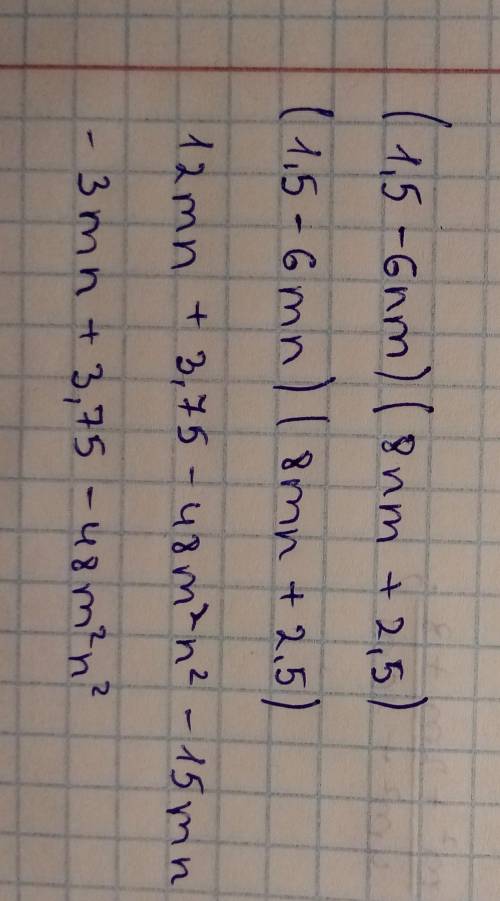 (1,5 - 6nm)(8nm + 2,5)
(1,5 - 6mn)(8mn + 2,5)
12mn + 3,75 - 48m²n² - 15mn
- 3mn + 3,75 - 48m²n²